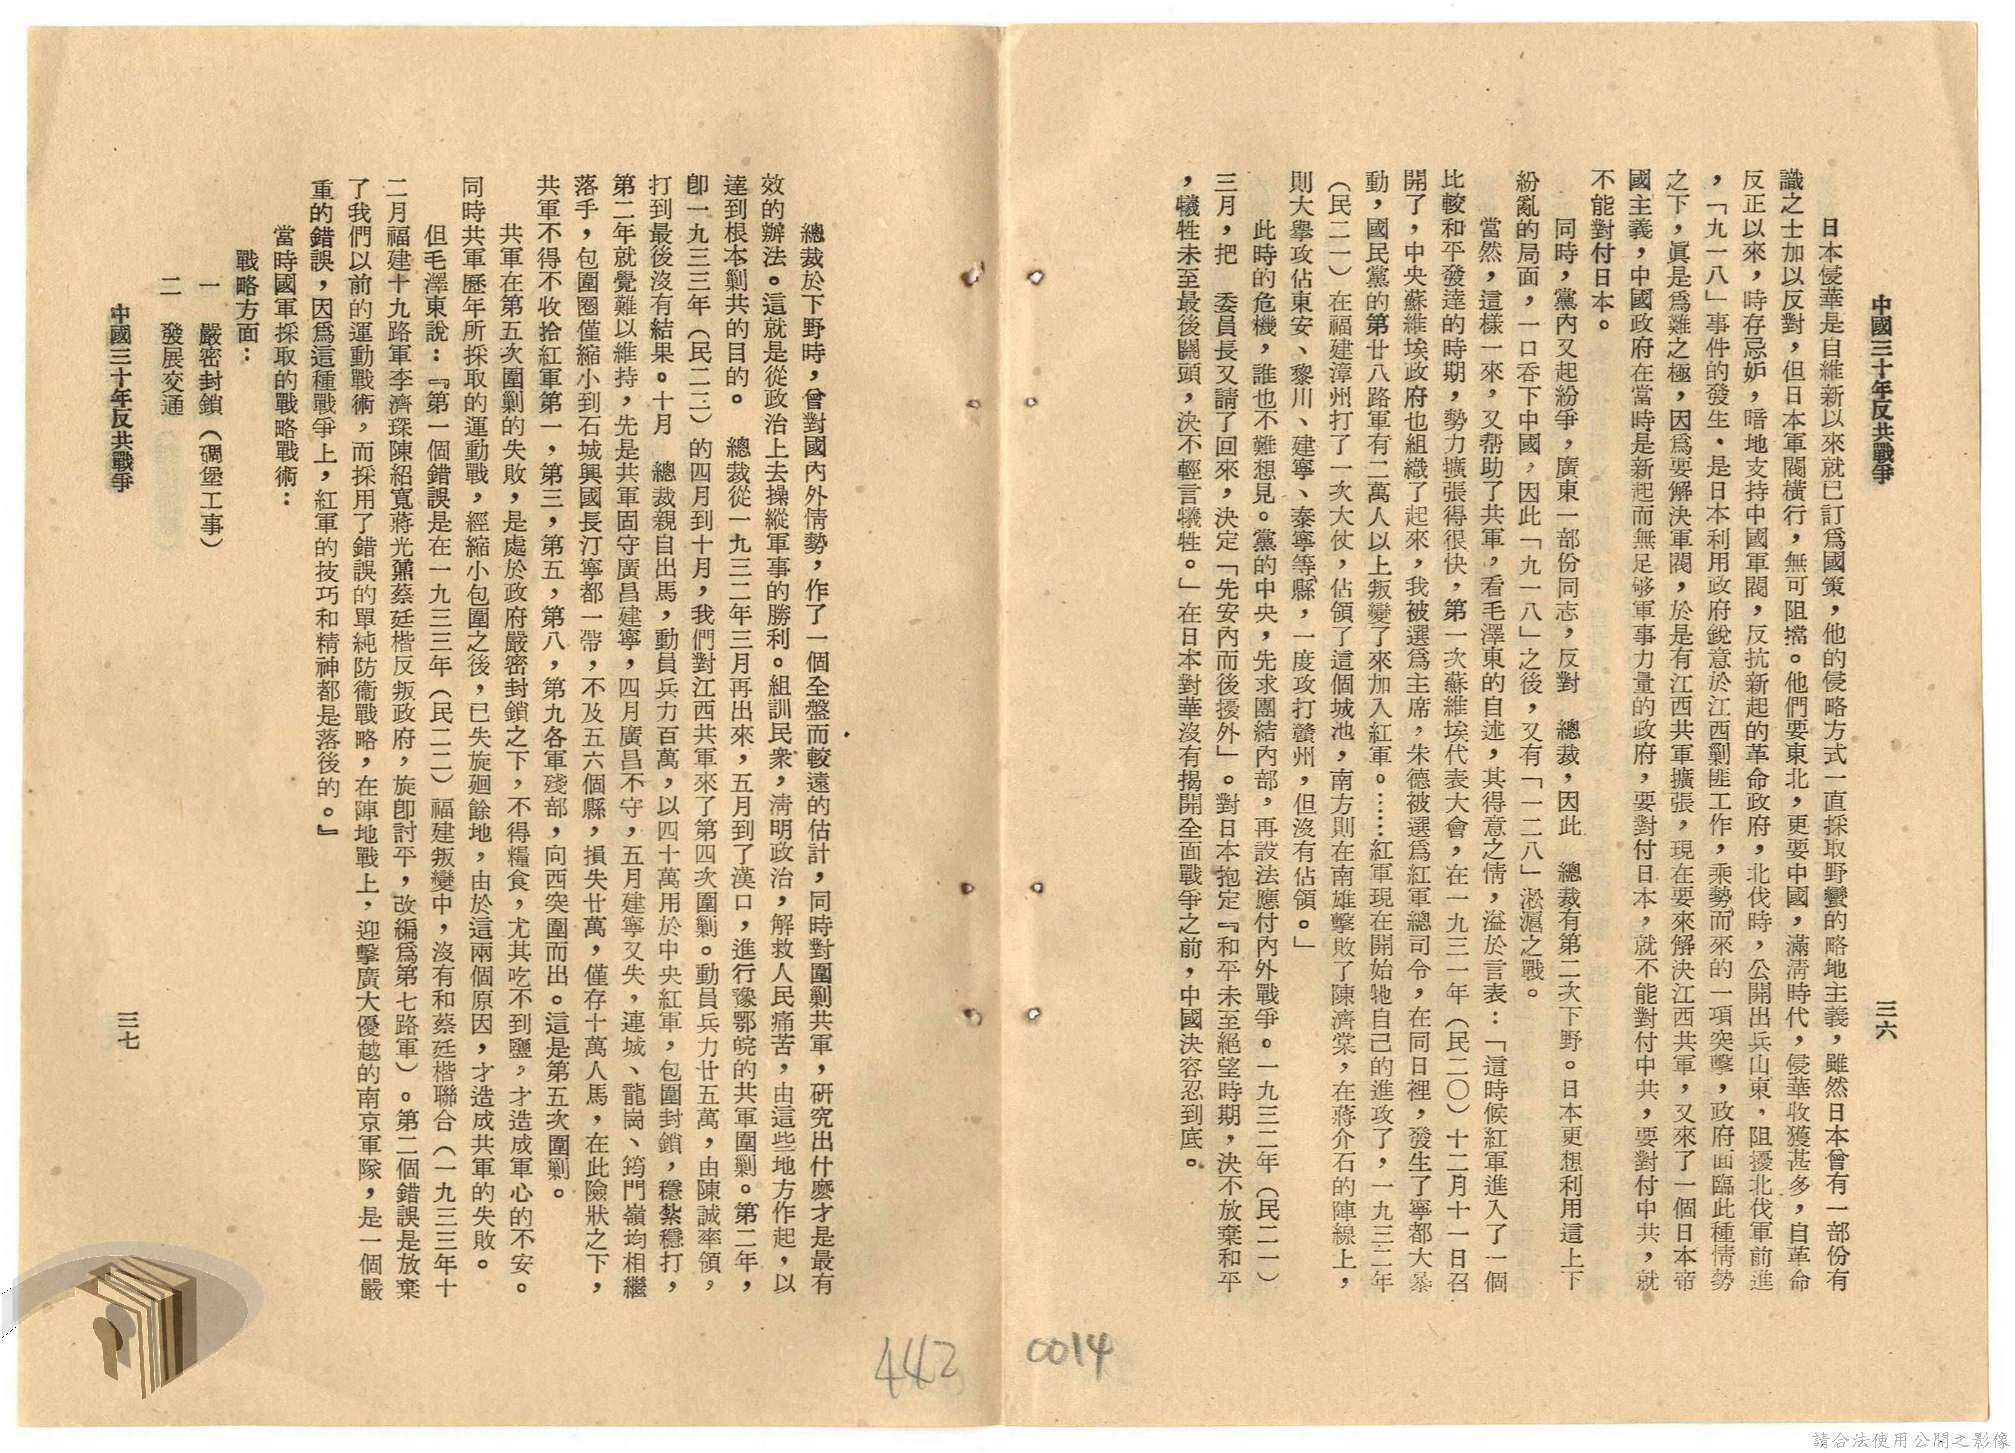 中國三十年反共戰爭
三六
日本侵華是自維新以來就已訂爲國策，他的侵略方式一直採取野蠻的略地主義，雖然日本曾有一部份有
識之士加以反對，但日本軍閥橫行，無可阻擋。他們要東北，更要中國，滿淸時代，侵華收獲甚多，自革命
反正以來，時存忌妒，暗地支持中國軍閥，反抗新起的革命政府，北伐時，公開出兵山東，阻擾北伐軍前進
，「九一八」事件的發生，是日本利用政府銳意於江西剿匪工作，乘勢而來的一項突擊，政府面臨此種情勢
之下，眞是爲難之極，因爲要解決軍閥，於是有江西共軍擴張，現在要來解決江西共軍，又來了一個日本帝
國主義，中國政府在當時是新起而無足够軍事力量的政府，要對付日本，就不能對付中共，要對付中共，就
不能對付日本。
同時，黨內又起紛爭，廣東一部份同志，反對　總裁，因此　總裁有第二次下野。日本更想利用這上下
紛亂的局面，一口吞下中國，因此「九一八」之後，又有「一二八」淞滬之戰。
當然，這樣一來，又帮助了共軍，看毛澤東的自述，其得意之情，溢於言表：「這時候紅軍進入了一個
比較和平發達的時期，勢力擴張得很快，第一次蘇維埃代表大會，在一九三一年（民二〇）十二月十一日召
開了，中央蘇維埃政府也組織了起來，我被選爲主席，朱德被選爲紅軍總司令，在同日裡，發生了寧都大暴
動，國民黨的第廿八路軍有二萬人以上叛變了來加入紅軍。……紅軍現在開始牠自己的進攻了，一九三二年
（民二一）在福建漳州打了一次大仗，佔領了這個城池，南方則在南雄擊敗了陳濟棠，在蔣介石的陣線上，
則大舉攻佔東安、黎川、建寧、泰寧等縣，一度攻打贛州，但沒有佔領。」
此時的危機，誰也不難想見。黨的中央，先求團結內部，再設法應付內外戰爭。一九三二年（民二一）
三月，把　委員長又請了回來，決定「先安內而後擾外」。對日本抱定『和平未至絕望時期，決不放棄和平
，犧牲未至最後關頭，決不輕言犧牲。」在日本對華沒有揭開全面戰爭之前，中國決容忍到底。
總裁於下野時，曾對國內外情勢，作了一個全盤而較遠的估計，同時對圍剿共軍，硏究出什麽才是最有
效的辦法。這就是從政治上去操縱軍事的勝利。組訓民衆，淸明政治，解救人民痛苦，由這些地方作起，以
達到根本剿共的目的。　總裁從一九三二年三月再出來，五月到了漢口，進行豫鄂皖的共軍圍剿。第二年，
卽一九三三年（民二二）的四月到十月，我們對江西共軍來了第四次圍剿。動員兵力廿五萬，由陳誠率領，
打到最後沒有結果。十月　總裁親自出馬，動員兵力百萬，以四十萬用於中央紅軍，包圍封鎖，穩紮穩打，
第二年就覺難以維持，先是共軍固守廣昌建寧，四月廣昌不守，五月建寧又失，連城、龍崗、筠門嶺均相繼
落手，包圍圈僅縮小到石城興國長汀寧都一帶，不及五六個縣，損失廿萬，僅存十萬人馬，在此險狀之下，
共軍不得不收拾紅軍第一，第三，第五，第八，第九各軍殘部，向西突圍而出。這是第五次圍剿。
共軍在第五次圍剿的失敗，是處於政府嚴密封鎖之下，不得糧食，尤其吃不到鹽，才造成軍心的不安。
同時共軍歷年所採取的運動戰，經縮小包圍之後，已失旋廻餘地，由於這兩個原因，才造成共軍的失敗。
但毛澤東說：『第一個錯誤是在一九三三年（民二二）福建叛變中，沒有和蔡廷楷聯合（一九三三年十
二月福建十九路軍李濟琛陳紹寬蔣光鼐蔡廷楷反叛政府，旋卽討平，改編爲第七路軍）。第二個錯誤是放棄
了我們以前的運動戰術，而採用了錯誤的單純防衞戰略，在陣地戰上，迎擊廣大優越的南京軍隊，是一個嚴
重的錯誤，因爲這種戰爭上，紅軍的技巧和精神都是落後的。』
當時國軍採取的戰略戰術：
戰略方面：
一　嚴密封鎖（碉堡工事）
二　發展交通
中國三十年反共戰爭
三七
442
0014
請合法使用公開之影像